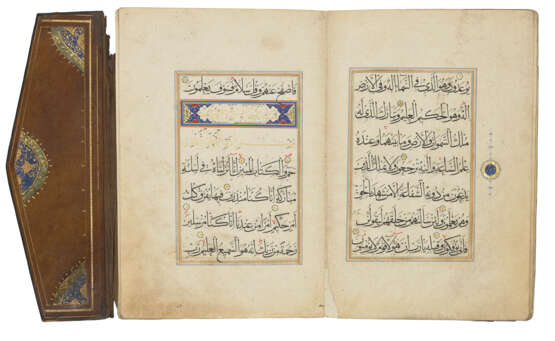 يوعدون وهو الذي في السماء اله وفي الارض
اله وهو الحكيم العليم وتبارك الذي له
ملك السموات والارض وما بينهما وعنده
علم الساعة واليه ترجعون ولا يملك الذين
يدعون من دونه الشفاعة الا من شهد بالحق
وهم يعلمون ولئن سالتهم من خلقهم ليقولن الله
فانى يؤفكون وقيله يارب ان هؤلاء قوم لا يؤمنون
فاصفح عنهم وقل سلام فسوف يعلمون
حم والكتاب المبين انا انزلناه في ليلة
مباركة انا كنا منذرين فيها يفرق كل
امر حكيم امرا من عندنا انا كنا مرسلين
رحمة من ربك انه هو السميع العليم رب